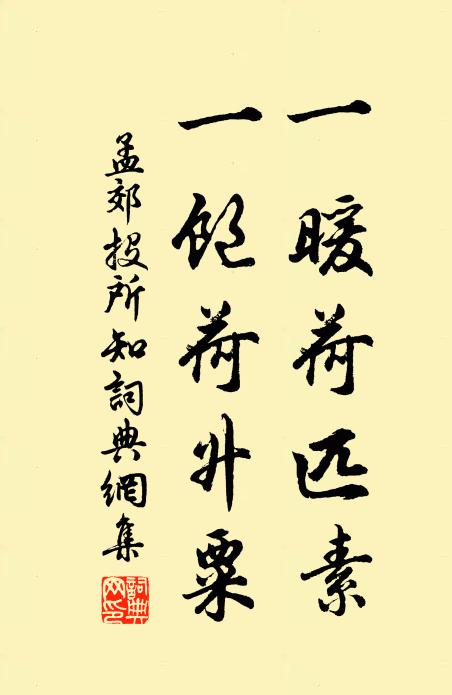 一暖荷匹素
一飽荷升粟
孟郊投所知詞典網集
詞典網印